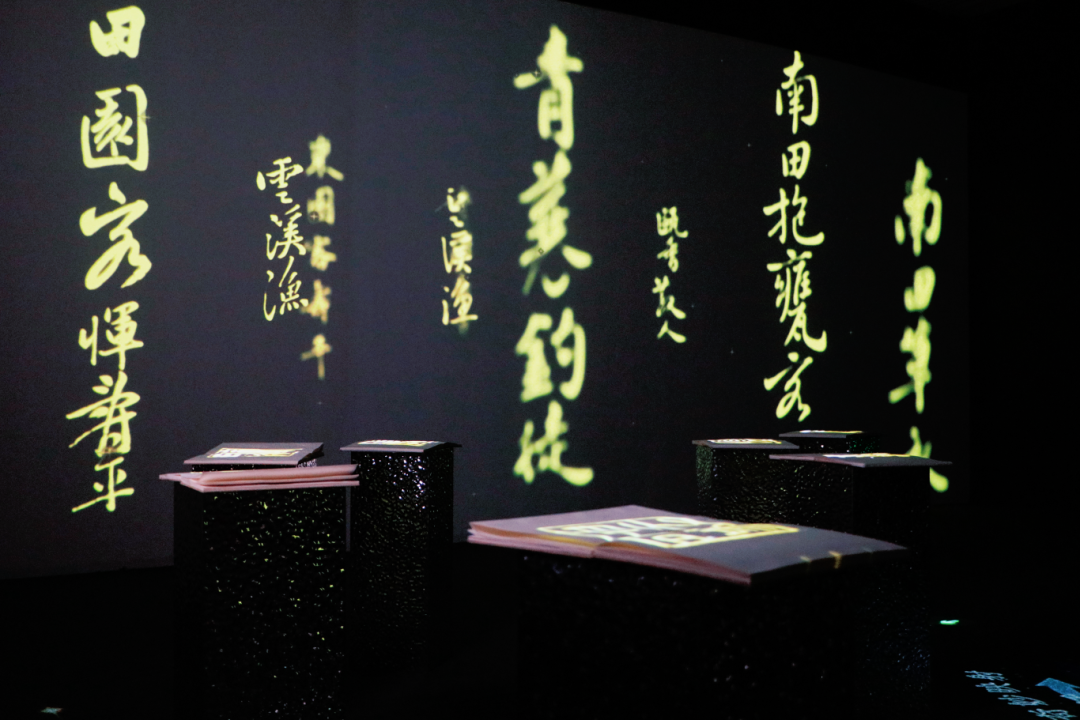 南田草
南田抱甕客
甌香散人
青蓑釣徒
雲溪漁
東園客壽平
雲溪漁
田園客惲壽平